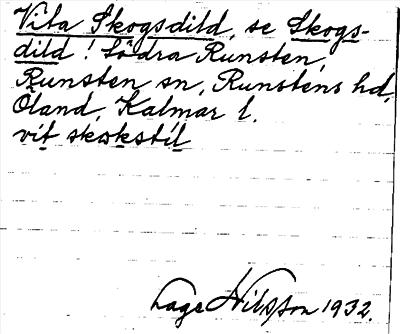 Vita Skogsdild, se Skogs-
dild! Södra Runsten,
Runsten sn, Runstens hd,
Öland, Kalmar l.
vit skokstil
Lage Nilsson 1932.